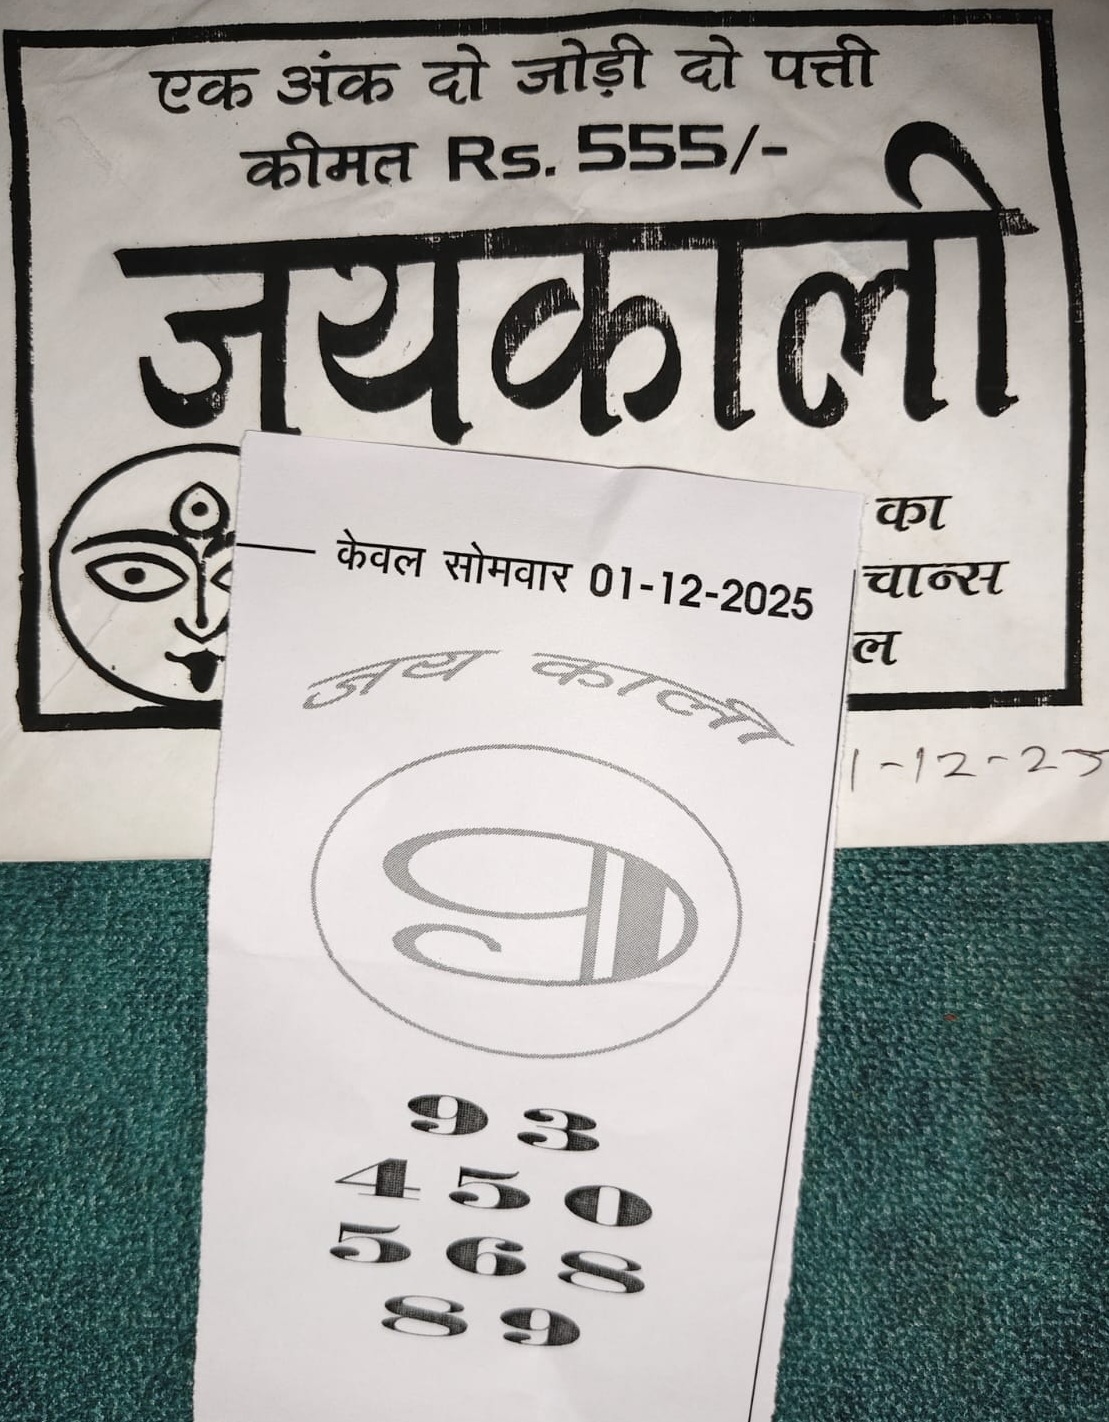 एक अंक दो जोड़ी दो पत्ती
कीमत Rs. 555/-
जयकाली
का
चान्स
ल
केवल सोमवार 01-12-2025
जय काली
9
93
450
568
89
1-12-25